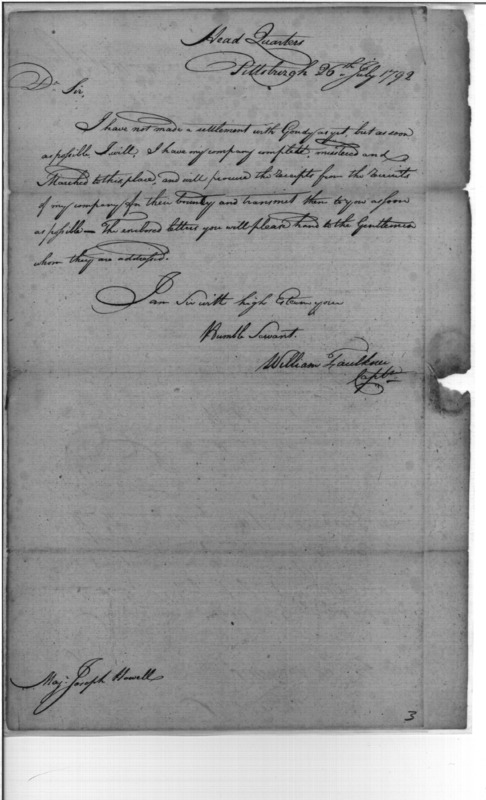 Head Quarters
Pittsburgh 26th July 1792
Dr Sir,
I have not made a settlement with Gendy as yet, but as soon
as possible I will, I have my company complete mustered and
Marched to this place, and will procure the receipts from the recruits
of my company for their bounty and transmit them to you as soon
as possible — The enclosed letters you will please hand to the Gentlemen
whom they are addressed.
I am Sir with high Esteem your
Humble Servant.
William Faulkner
Captn
Maj: Joseph Howell
3